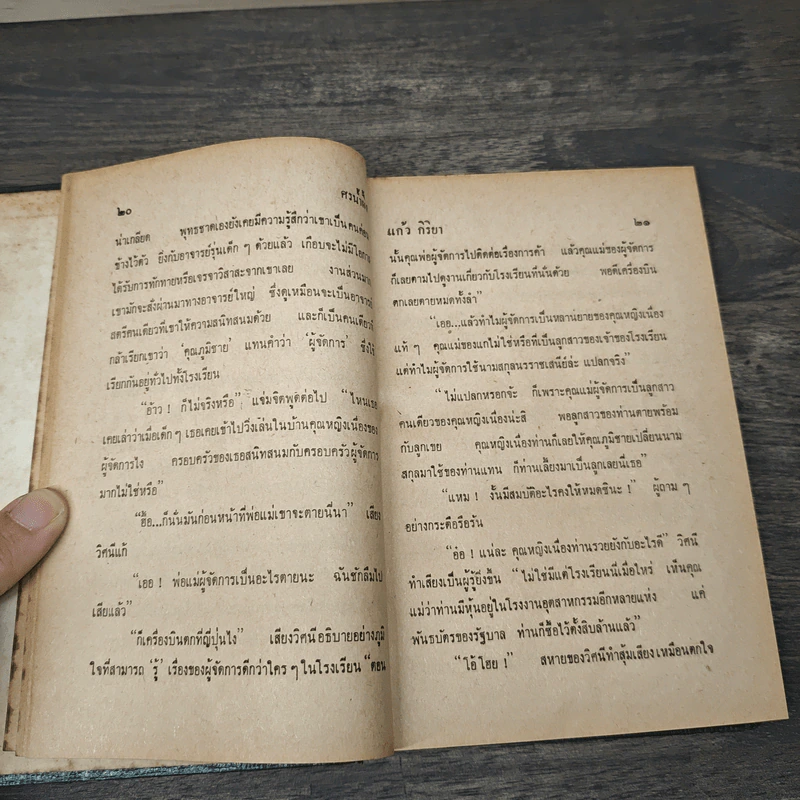 ๒๐
น่าเกลียด พุทธชาดเองยังเคยมีความรู้สึกว่าเขาเป็นคน
ข้างไว้ตัว ยิ่งกับอาจารย์รุ่นเด็ก ๆ ด้วยแล้ว เกือบจะไม่มีโอกาส
ได้รับการทักทายหรือเจรจาวิสาสะจากเขาเลย งานส่วนมาก
เขามักจะสั่งผ่านมาทางอาจารย์ใหญ่ ซึ่งดูเหมือนจะเป็นอาจารย์
สตรีคนเดียวที่เขาให้ความสนิทสนมด้วย และก็เป็นคนเดียวที่
กล้าเรียกเขาว่า ‘คุณภูมิชาย’ แทนคำว่า ‘ผู้จัดการ’ ซึ่งใช้
เรียกกันอยู่ทั่วไปทั้งโรงเรียน
“อ้าว ! ก็ไม่จริงหรือ” แจ่มจิตพูดต่อไป “ไหนเธอ
เคยเล่าว่าเมื่อเด็ก ๆ เธอเคยเข้าไปวิ่งเล่นในบ้านคุณหญิงเนื่องของ
ผู้จัดการไง ครอบครัวของเธอสนิทสนมกับครอบครัวผู้จัดการ
มากไม่ใช่หรือ”
“ฮื้อ...ก็นั่นมันก่อนหน้าที่พ่อแม่เขาจะตายนี่นา” เสียง
วิศนีแก้
“เออ ! พ่อแม่ผู้จัดการเป็นอะไรตายนะ ฉันชักลืมไป
เสียแล้ว”
“ก็เครื่องบินตกที่ญี่ปุ่นไง” เสียงวิศนีอธิบายอย่างภูมิ
ใจที่สามารถ ‘รู้’ เรื่องของผู้จัดการดีกว่าใคร ๆ ในโรงเรียน “ตอน
แก้ว กิริยา
๒๑
นั้นคุณพ่อผู้จัดการไปติดต่อเรื่องการค้า แล้วคุณแม่ของผู้จัดการ
ก็เลยตามไปดูงานเกี่ยวกับโรงเรียนที่นั่นด้วย พอดีเครื่องบิน
ตกเลยตายหมดทั้งลำ”
“เออ...แล้วทำไมผู้จัดการเป็นหลานยายของคุณหญิงเนื่อง
แท้ ๆ คุณแม่ของแกไม่ใช่หรือที่เป็นลูกสาวของเจ้าของโรงเรียน
แต่ทำไมผู้จัดการใช้นามสกุลนรราชเสนีย์ล่ะ แปลกจริง”
“ไม่แปลกหรอกจ้ะ ก็เพราะคุณแม่ผู้จัดการเป็นลูกสาว
คนเดียวของคุณหญิงเนื่องน่ะสิ พอลูกสาวของท่านตายพร้อม
กับลูกเขย คุณหญิงเนื่องท่านก็เลยให้คุณภูมิชายเปลี่ยนนาม
สกุลมาใช้ของท่านแทน ก็ท่านเลี้ยงมาเป็นลูกเลยนี่เธอ”
“แหม ! งั้นมีสมบัติอะไรคงให้หมดซินะ !” ผู้ถาม ๆ
อย่างกระตือรือร้น
“อ๋อ ! แน่ล่ะ คุณหญิงเนื่องท่านรวยยังกับอะไรดี” วิศนี
ทำเสียงเป็นผู้รู้ยิ่งขึ้น “ไม่ใช่มีแต่โรงเรียนนี้เมื่อไหร่ เห็นคุณ
แม่ว่าท่านมีหุ้นอยู่ในโรงงานอุตสาหกรรมอีกหลายแห่ง แค่
พันธบัตรของรัฐบาล ท่านก็ซื้อไว้ตั้งสิบล้านแล้ว”
“โอ้โฮย !” สหายของวิศนีทำสุ้มเสียงเหมือนตกใจ